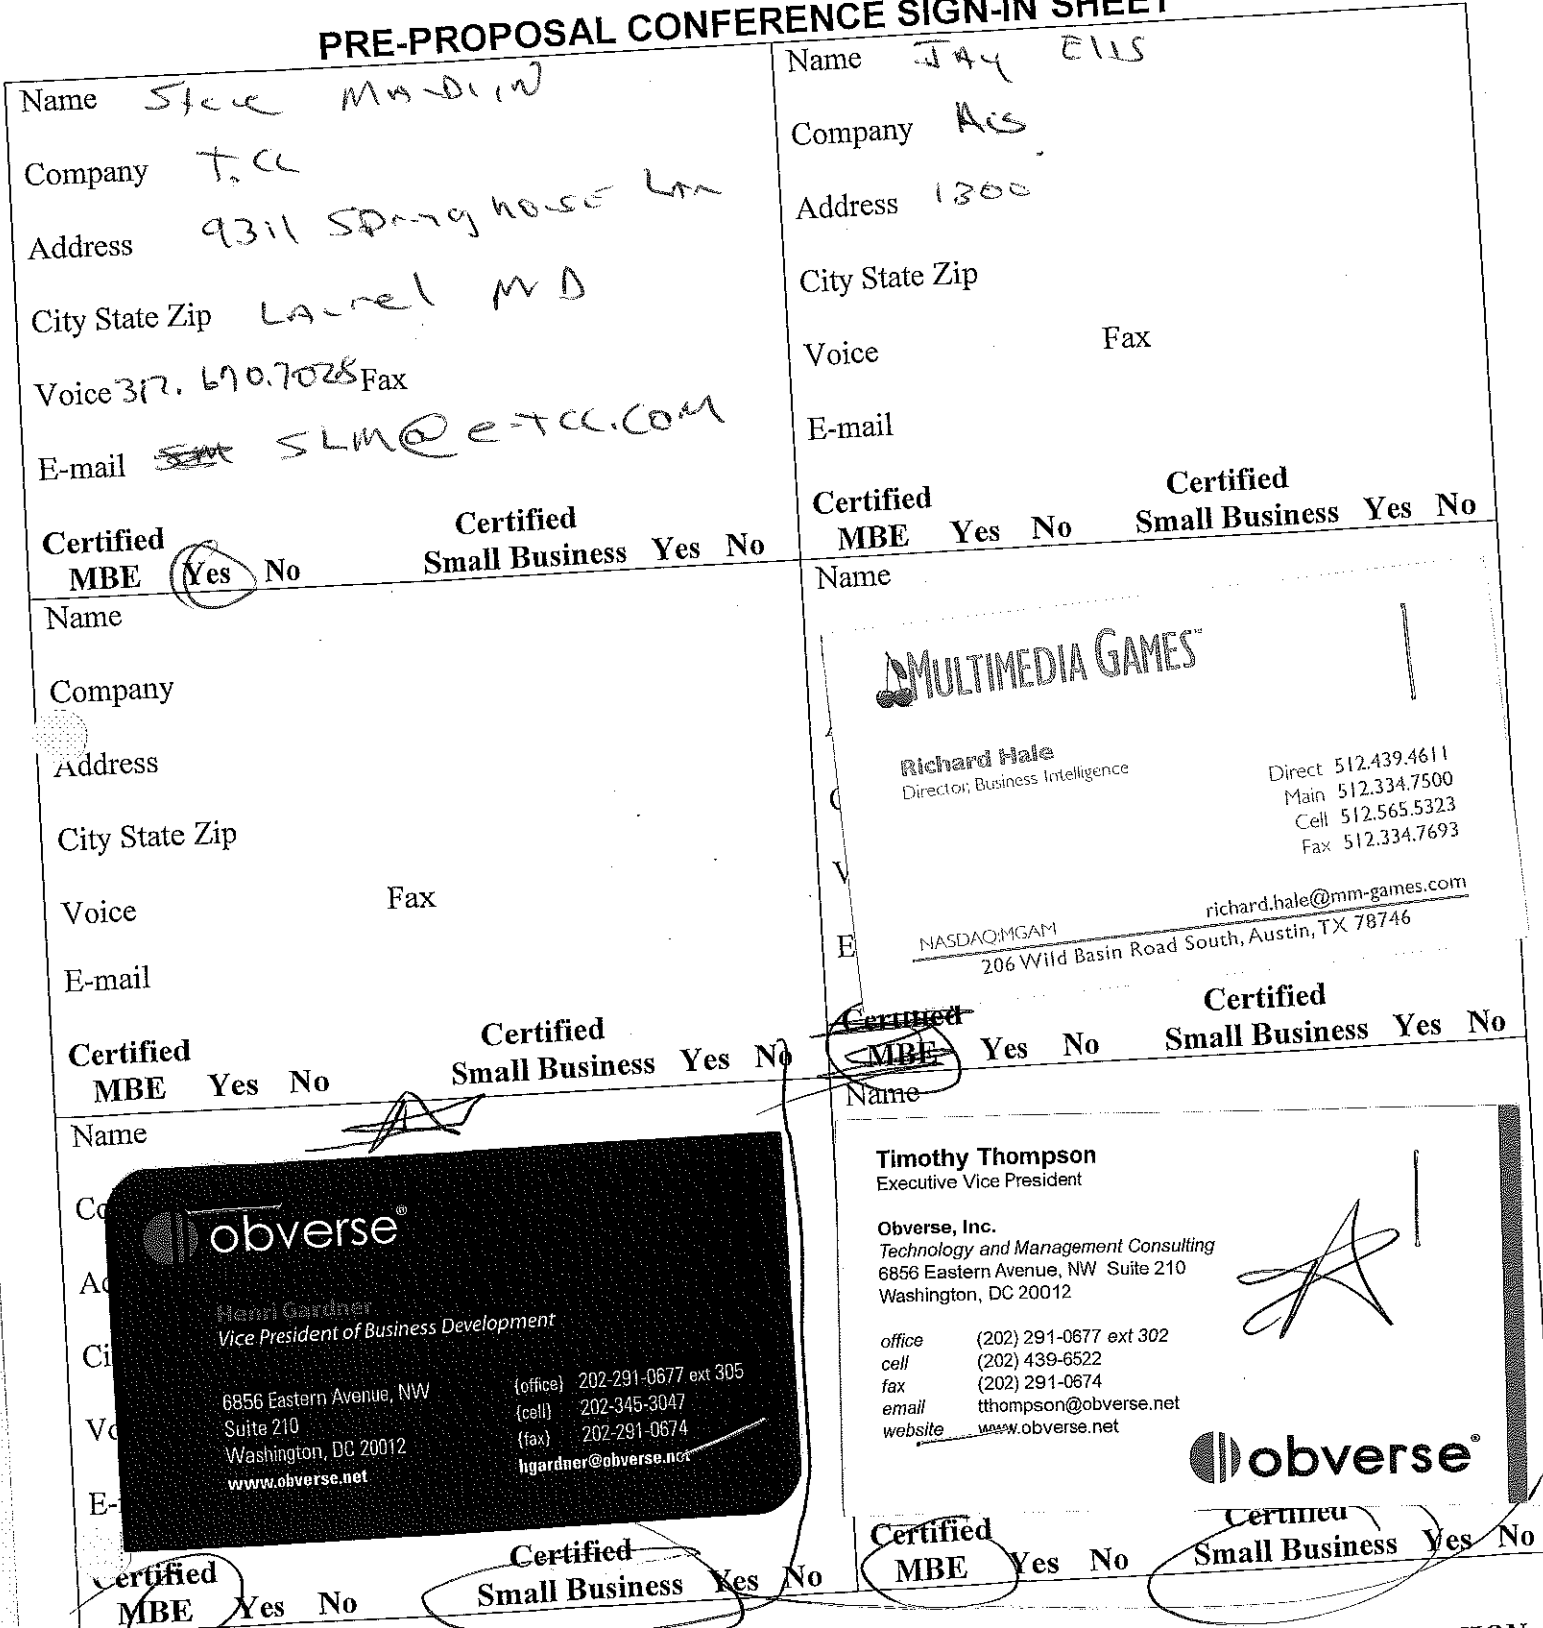 PRE-PROPOSAL CONFERENCE SIGN-IN SHEET
Name Steve MADLIN
Company T.CC
Address 9311 Spring house Lan
City State Zip Laurel MD
Voice 317. 670.7028 Fax
E-mail SLM@e-TCC.COM
Certified Certified
MBE Yes No Small Business Yes No
Name JAy Ellis
Company ACS
Address 1300
City State Zip
Voice Fax
E-mail
Certified Certified
MBE Yes No Small Business Yes No
Name
Company
Address
City State Zip
Voice Fax
E-mail
Certified Certified
MBE Yes No Small Business Yes No
Name
MULTIMEDIA GAMES™
Richard Hale
Director, Business Intelligence
Direct 512.439.4611
Main 512.334.7500
Cell 512.565.5323
Fax 512.334.7693
richard.hale@mm-games.com
NASDAQ:MGAM
206 Wild Basin Road South, Austin, TX 78746
Certified Certified
MBE Yes No Small Business Yes No
Name
obverse®
Henri Gardner
Vice President of Business Development
6856 Eastern Avenue, NW
Suite 210
Washington, DC 20012
www.obverse.net
(office) 202-291-0677 ext 305
(cell) 202-345-3047
(fax) 202-291-0674
hgardner@obverse.net
Certified Certified
MBE Yes No Small Business Yes No
Name
Timothy Thompson
Executive Vice President
Obverse, Inc.
Technology and Management Consulting
6856 Eastern Avenue, NW Suite 210
Washington, DC 20012
office (202) 291-0677 ext 302
cell (202) 439-6522
fax (202) 291-0674
email tthompson@obverse.net
website www.obverse.net
obverse®
Certified Certified
MBE Yes No Small Business Yes No